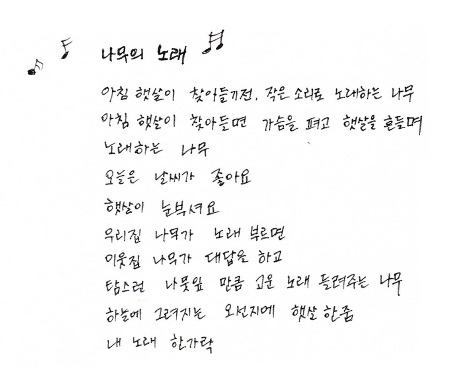 나무의 노래
아침 햇살이 찾아들기전, 작은 소리로 노래하는 나무
아침 햇살이 찾아들면 가슴을 펴고 햇살을 흔들며
노래하는 나무
오늘은 날씨가 좋아요
햇살이 눈부셔요
우리집 나무가 노래 부르면
이웃집 나무가 대답을 하고
탐스런 나뭇잎 만큼 고운 노래 들려주는 나무
하늘에 그려지는 오선지에 햇살 한줌
내 노래 한가락